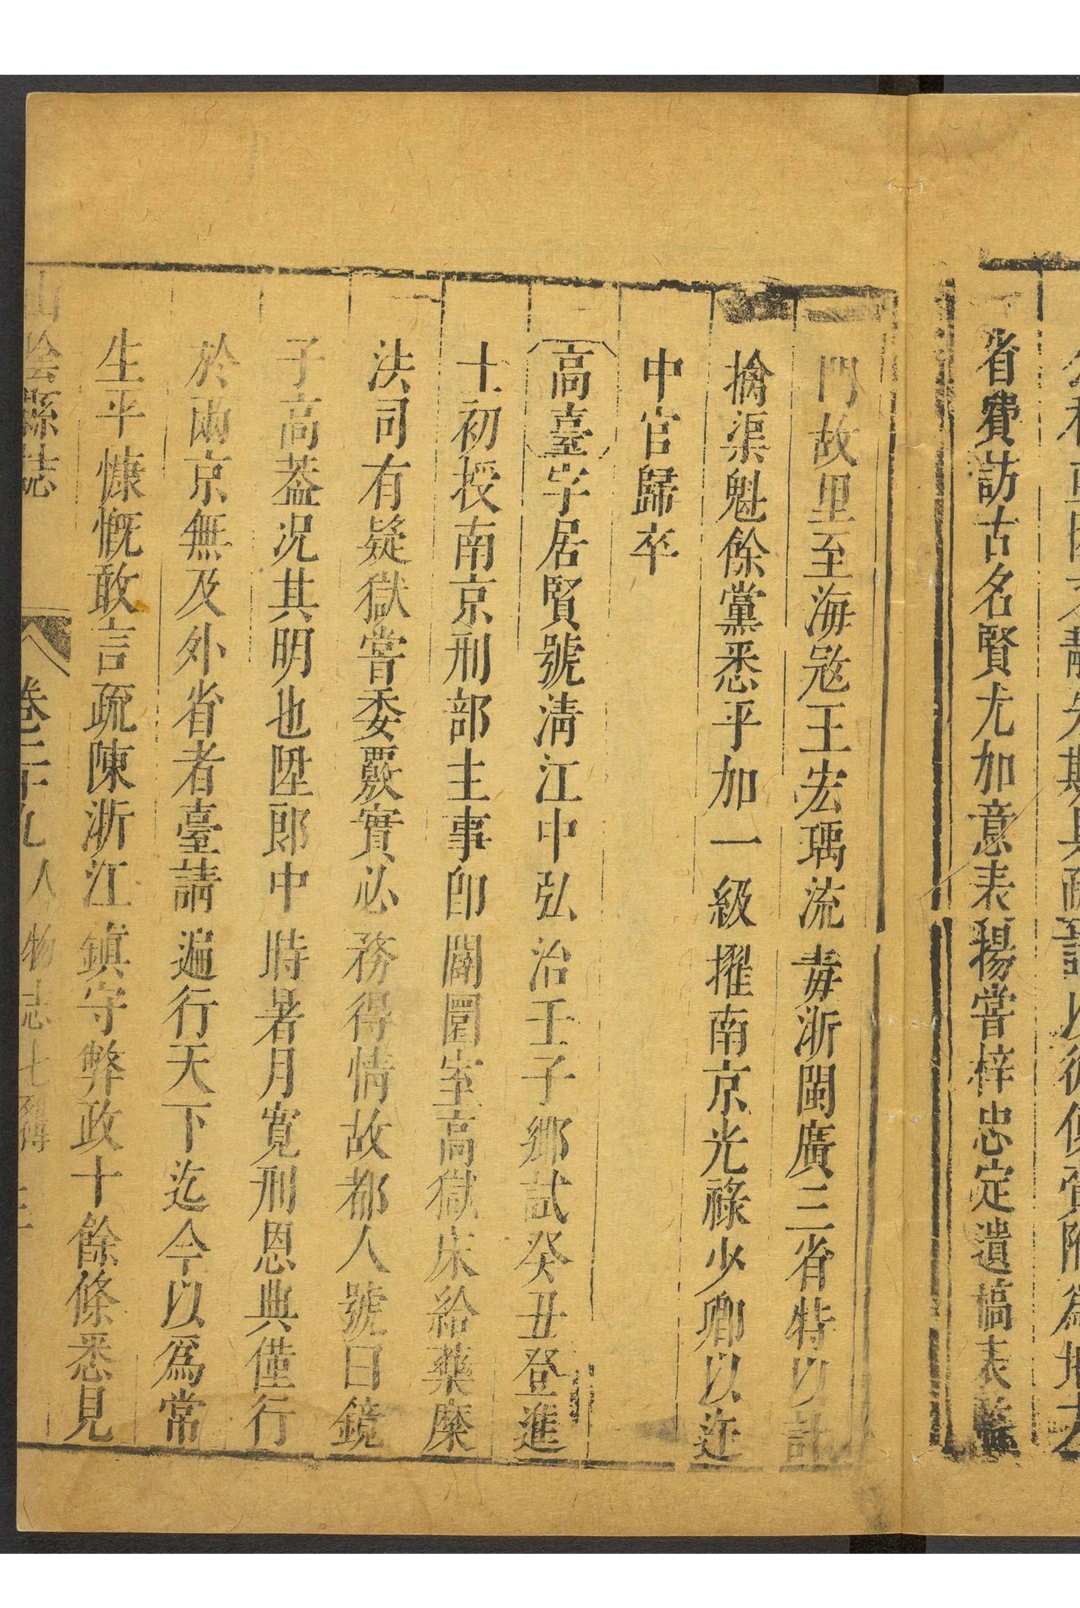 省費訪古名賢尤加意表揚嘗梓忠定遺稿表
門故里至海𡨥王宏瑀流毒浙閩廣三省特以計
擒渠魁餘黨悉平加一級擢南京光祿少卿以迕
中官歸卒
高臺字居賢號清江中弘治壬子鄉試癸丑登進
士初授南京刑部主事卽闢圜室高獄床給藥糜
法司有疑獄嘗委覈實必務得情故都人號曰鏡
子高葢况其明也陞郎中時暑月寬刑恩典僅行
於兩京無及外省者臺請遍行天下迄今以爲常
生平慷慨敢言疏陳浙江鎮守弊政十餘條悉見
山陰縣誌 卷二十九 人物志七 列傳